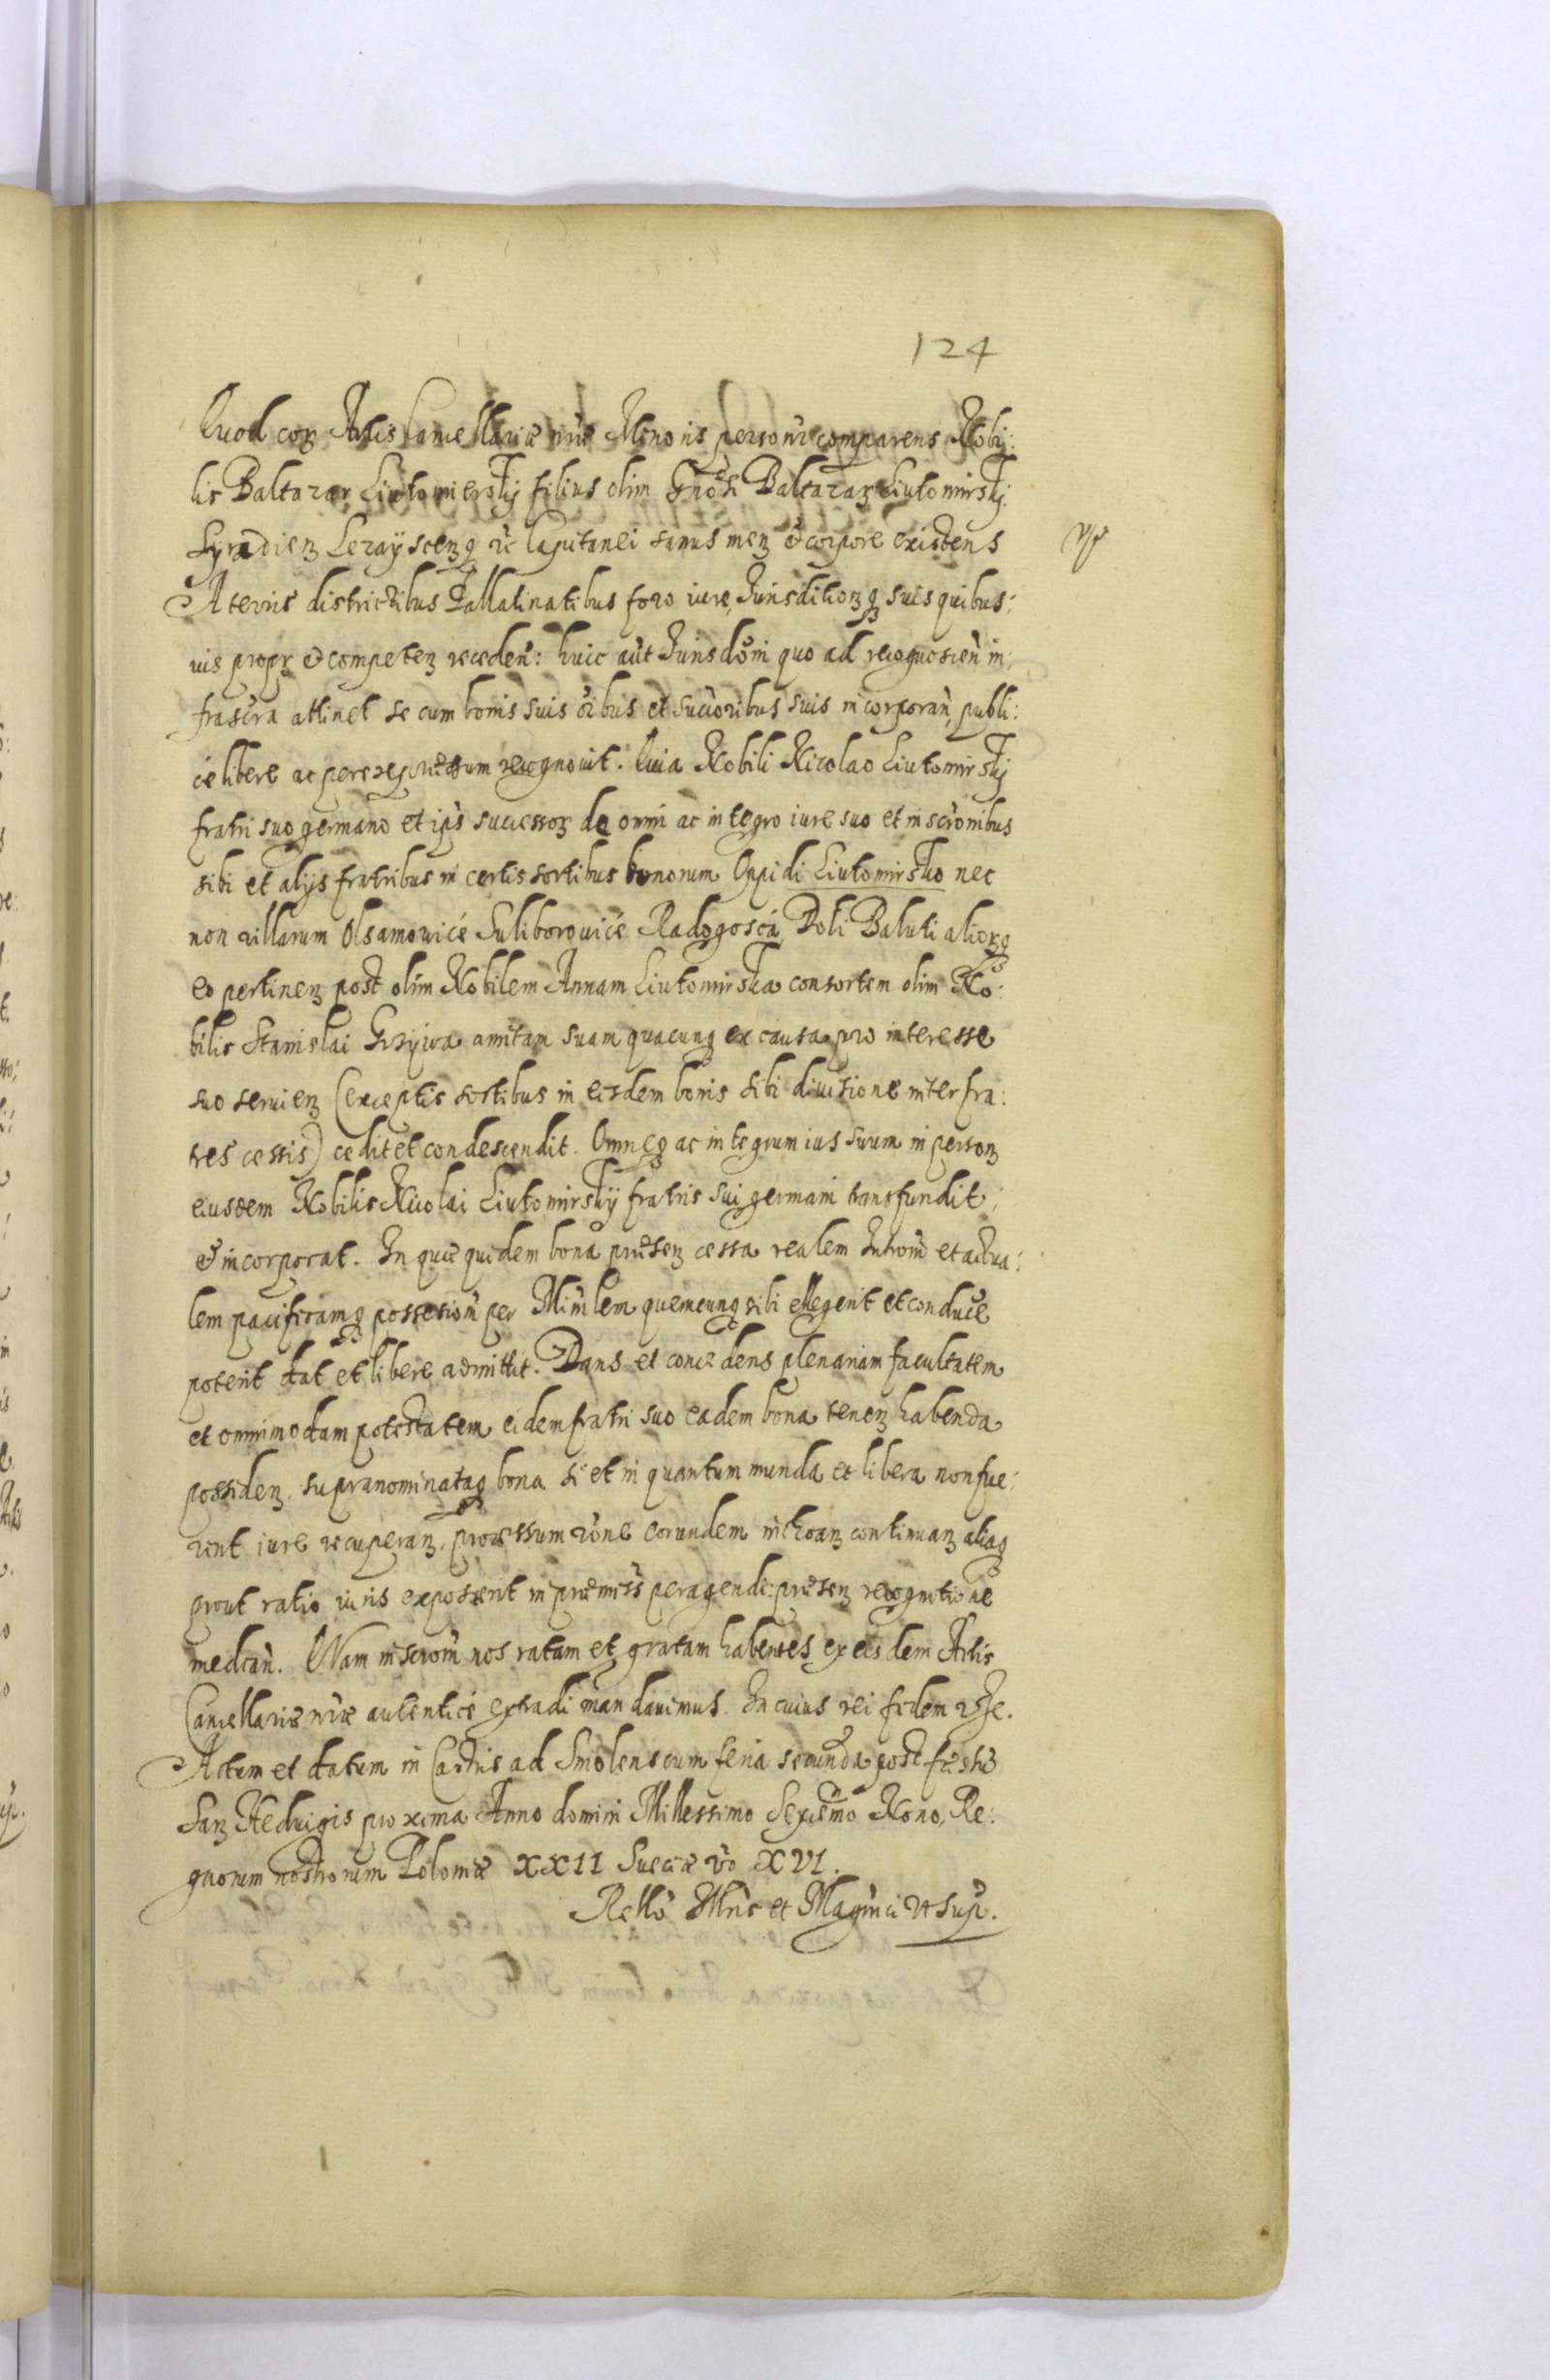 124
Quod corz Actis Cancellariæ nræ Minoris personr comparens Nobi:
lis Baltazar Liutomierskij filius olim Gnosi Baltazarz Liutomirskj
Syradienz Lezayscenzq rc Capitanei sanus menz & corpore existens
A terris districtibus Pallatinatibus foro iure Iurisditionzq suis quibus:
uis propr & competenz receden: huic aut Iurisdoni quo ad recognoscen in:
frascra attinet se cum bonis suis oibus et succoribus suis incorporan, publi:
ce libere ac per expressum recognouit. Quia Nobili Nicolao Liutomirskj
fratri suo germano et ips successorz de omni ac integro iure suo et inscronibus
sibi et alijs fratribus in certis sortibus bonorum Oppidi Liutomirsko nec
non villarum Olsamowice Suliborouice Radogosca Doli Baluti aliorzq
eo pertinenz post olim Nobilem Annam Liutomirska consortem olim No:
bilis Stanislai Grzywa amitam suam quacunq ex causa pro interesse
suo seruienz (exceptis sortibus in eisdem bonis sibi diuisione inter fra:
tres cessis) cedit et condescendit. Omneq ac integrum ius suum in personz
eiusdem Nobilis Nicolai Liutomirskij fratris sui germani transfundit,
& incorporat. In quæ quidem bona præsenz cessa realem Introm et actua:
lem pacificamq possesiom per Minlem quemcunq sibi ellegerit et conduce
poterit dat et libere admittit. Dans et concedens plenariam facultatem
et omnimodam potestatem eidem fratri suo eadem bona tenenz habenda
possidenz supranominataq bona si et in quantum munda et libera non fue:
rint iure recuperanz, processum rone eorundem inchoanz continuanz aliaq
prout ratio iuris exposcerit in præmiss peragendi: præsenz recognitione
median. Quam inscrom nos ratam et gratam habentes ex eisdem Actis
Cancellariæ nræ autentice extradi mandauimus. In cuius rei fidem etc.
Actum et datum in Castris ad Smolenscum feria secunda post festu
Sanz Hedvigis proxima Anno domini Millessimo Sexcsmo Nono, Re:
gnorum nostrorum Poloniæ XXII Sueciæ vo XVI.
Rello Illris et Magnci ut sup.